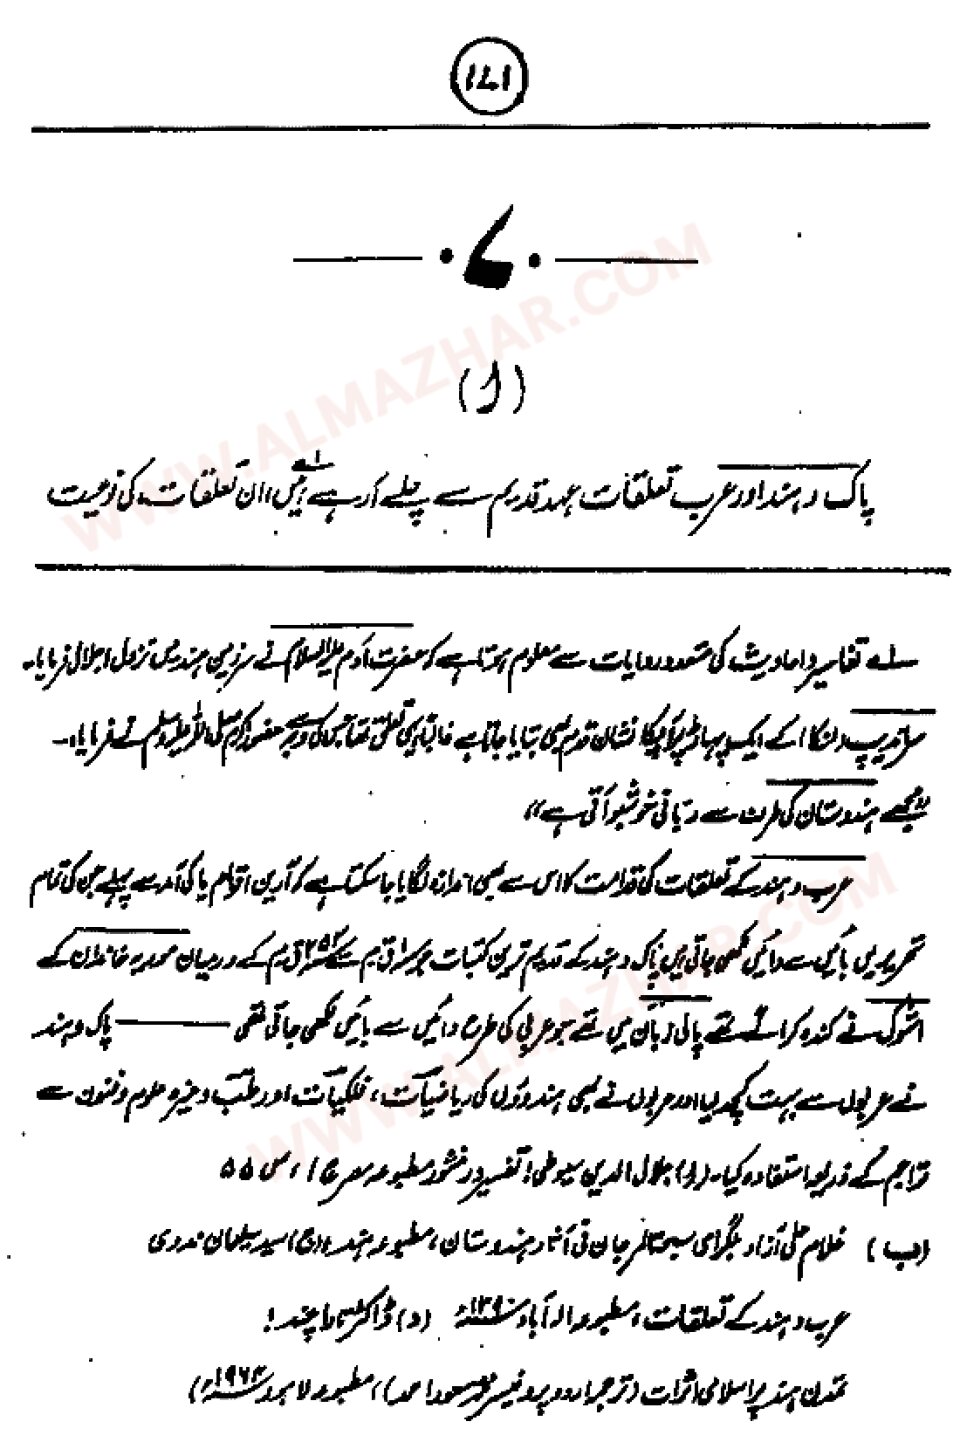 ۱۷۱
۷۰
WWW.ALMAZHAR.COM
(ا)
پاک و ہند اور عرب تعلقات عہد قدیم سے چلے آ رہے ہیں ۱؎، ان تعلقات کی نوعیت
۱؎ تفاسیر و احادیث کی متعدد روایات سے معلوم ہوتا ہے کہ حضرت آدم علیہ السلام نے سرزمین ہند میں نزول اجلال فرمایا۔
سراندیپ (لنکا) کے ایک پہاڑ پر آپ کا نشان قدم بھی بتایا جاتا ہے غالباً یہی تعلق تھا جس کی وجہ سے حضور اکرم صلی اللہ علیہ وسلم نے فرمایا:۔
"مجھے ہندوستان کی طرف سے ربانی خوشبو آتی ہے"
عرب و ہند کے تعلقات کی قدامت کا اس سے بھی اندازہ لگایا جا سکتا ہے کہ آرین اقوام یا کی آمد سے پہلے جن کی تمام
تحریریں بائیں سے دائیں لکھی جاتی ہیں پاک و ہند کے قدیم ترین کتبات جو ق م سے ۲۵۲ ق م کے درمیان خاندان کے
اشوک نے کندہ کرائے تھے پالی زبان میں تھے جو عربی کی طرح دائیں سے بائیں لکھی جاتی تھی —— پاک و ہند
نے عربوں سے بہت کچھ لیا اور عربوں نے بھی ہندوؤں کی ریاضیات، فلکیات اور طب وغیرہ علوم و فنون سے
تراجم کے ذریعہ استفادہ کیا۔ (ا) جلال الدین سیوطی: تفسیر در منثور مطبوعہ مصر ج ا، ص ۵۵
(ب) غلام علی آزاد بلگرامی سبحۃ المرجان فی آثار ہندوستان، مطبوعہ ہند، (ج) سید سلیمان ندوی
عرب و ہند کے تعلقات، مطبوعہ الہ آباد (د) ڈاکٹر تارا چند!
تمدن ہند پر اسلامی اثرات (ترجمہ اردو پروفیسر محمد مسعود احمد)، مطبوعہ لاہور ۱۹۶۴ء)
WWW.ALMAZHAR.COM